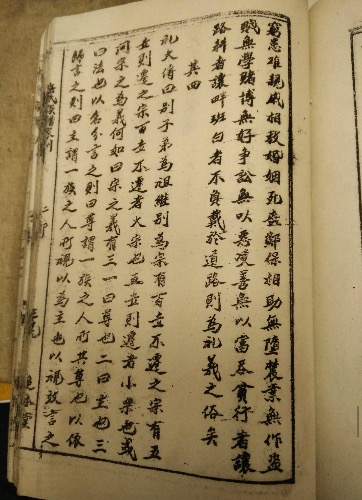 窮患难親戚相救婚姻死喪鄰保相助無墮農業無作盗
賊無學賭博無好争訟無以惡凌善無以富吞貧行者讓
路耕者讓畔班白者不負戴於道路則為礼義之俗矣
其四
礼大傳曰别子為祖继别為宗有百世不遷之宗有五
世則遷之宗百世不遷者大宗也五世則遷者小宗也或
问宗之為義何如曰宗之義有三一曰尊也二曰主也三
曰法也以名分言之則曰尊謂一族之人所共尊也以係
言之則曰主謂一族之人所视以為主也以视效言之
追本堂